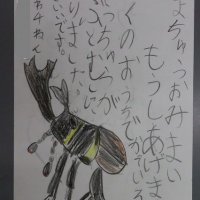 よちゅうおみまい
もうしあげま
くのおうちでかっている
ちゅうが
とむしに
りました。
いいです。